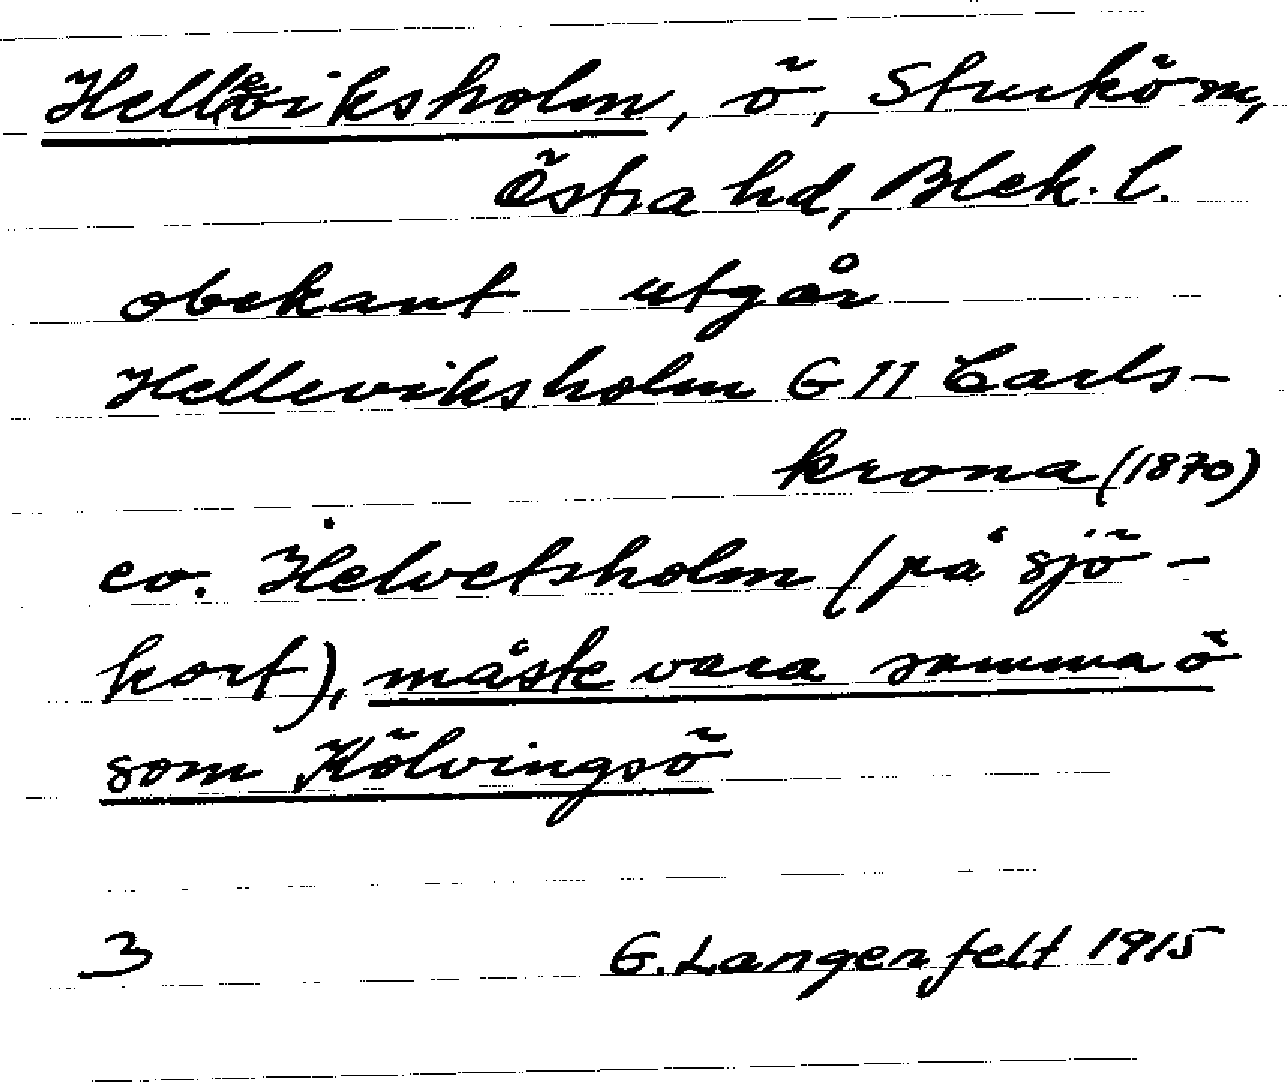 Helleviksholm, ö, Sturkö sn,
Östra hd, Blek. l.
obekant utgår
Helleviksholm G II Carls-
krona (1870)
ev. Helvetsholm (på sjö-
kort), måste vara samma ö
som Kölvingsö
3 G. Langenfelt 1915